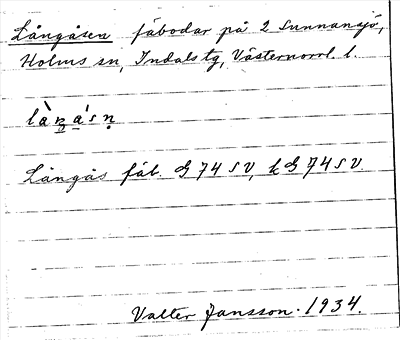 Långåsen fäbodar på 2 Sunnansjö,
Holms sn, Indals tg, Västernorrl. l.
Långås fäb. G 74 SV, k G 74 SV.
Valter Jansson. 1934.